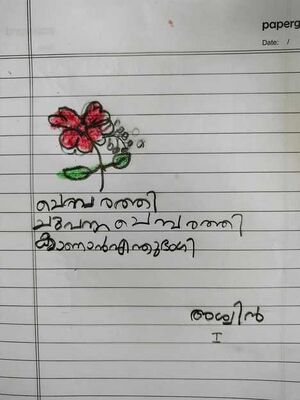 paperg
Date: /
ചെമ്പരത്തി
ചുവന്ന ചെമ്പരത്തി
കാണാൻ എന്തുഭംഗി
അശ്വിൻ
I